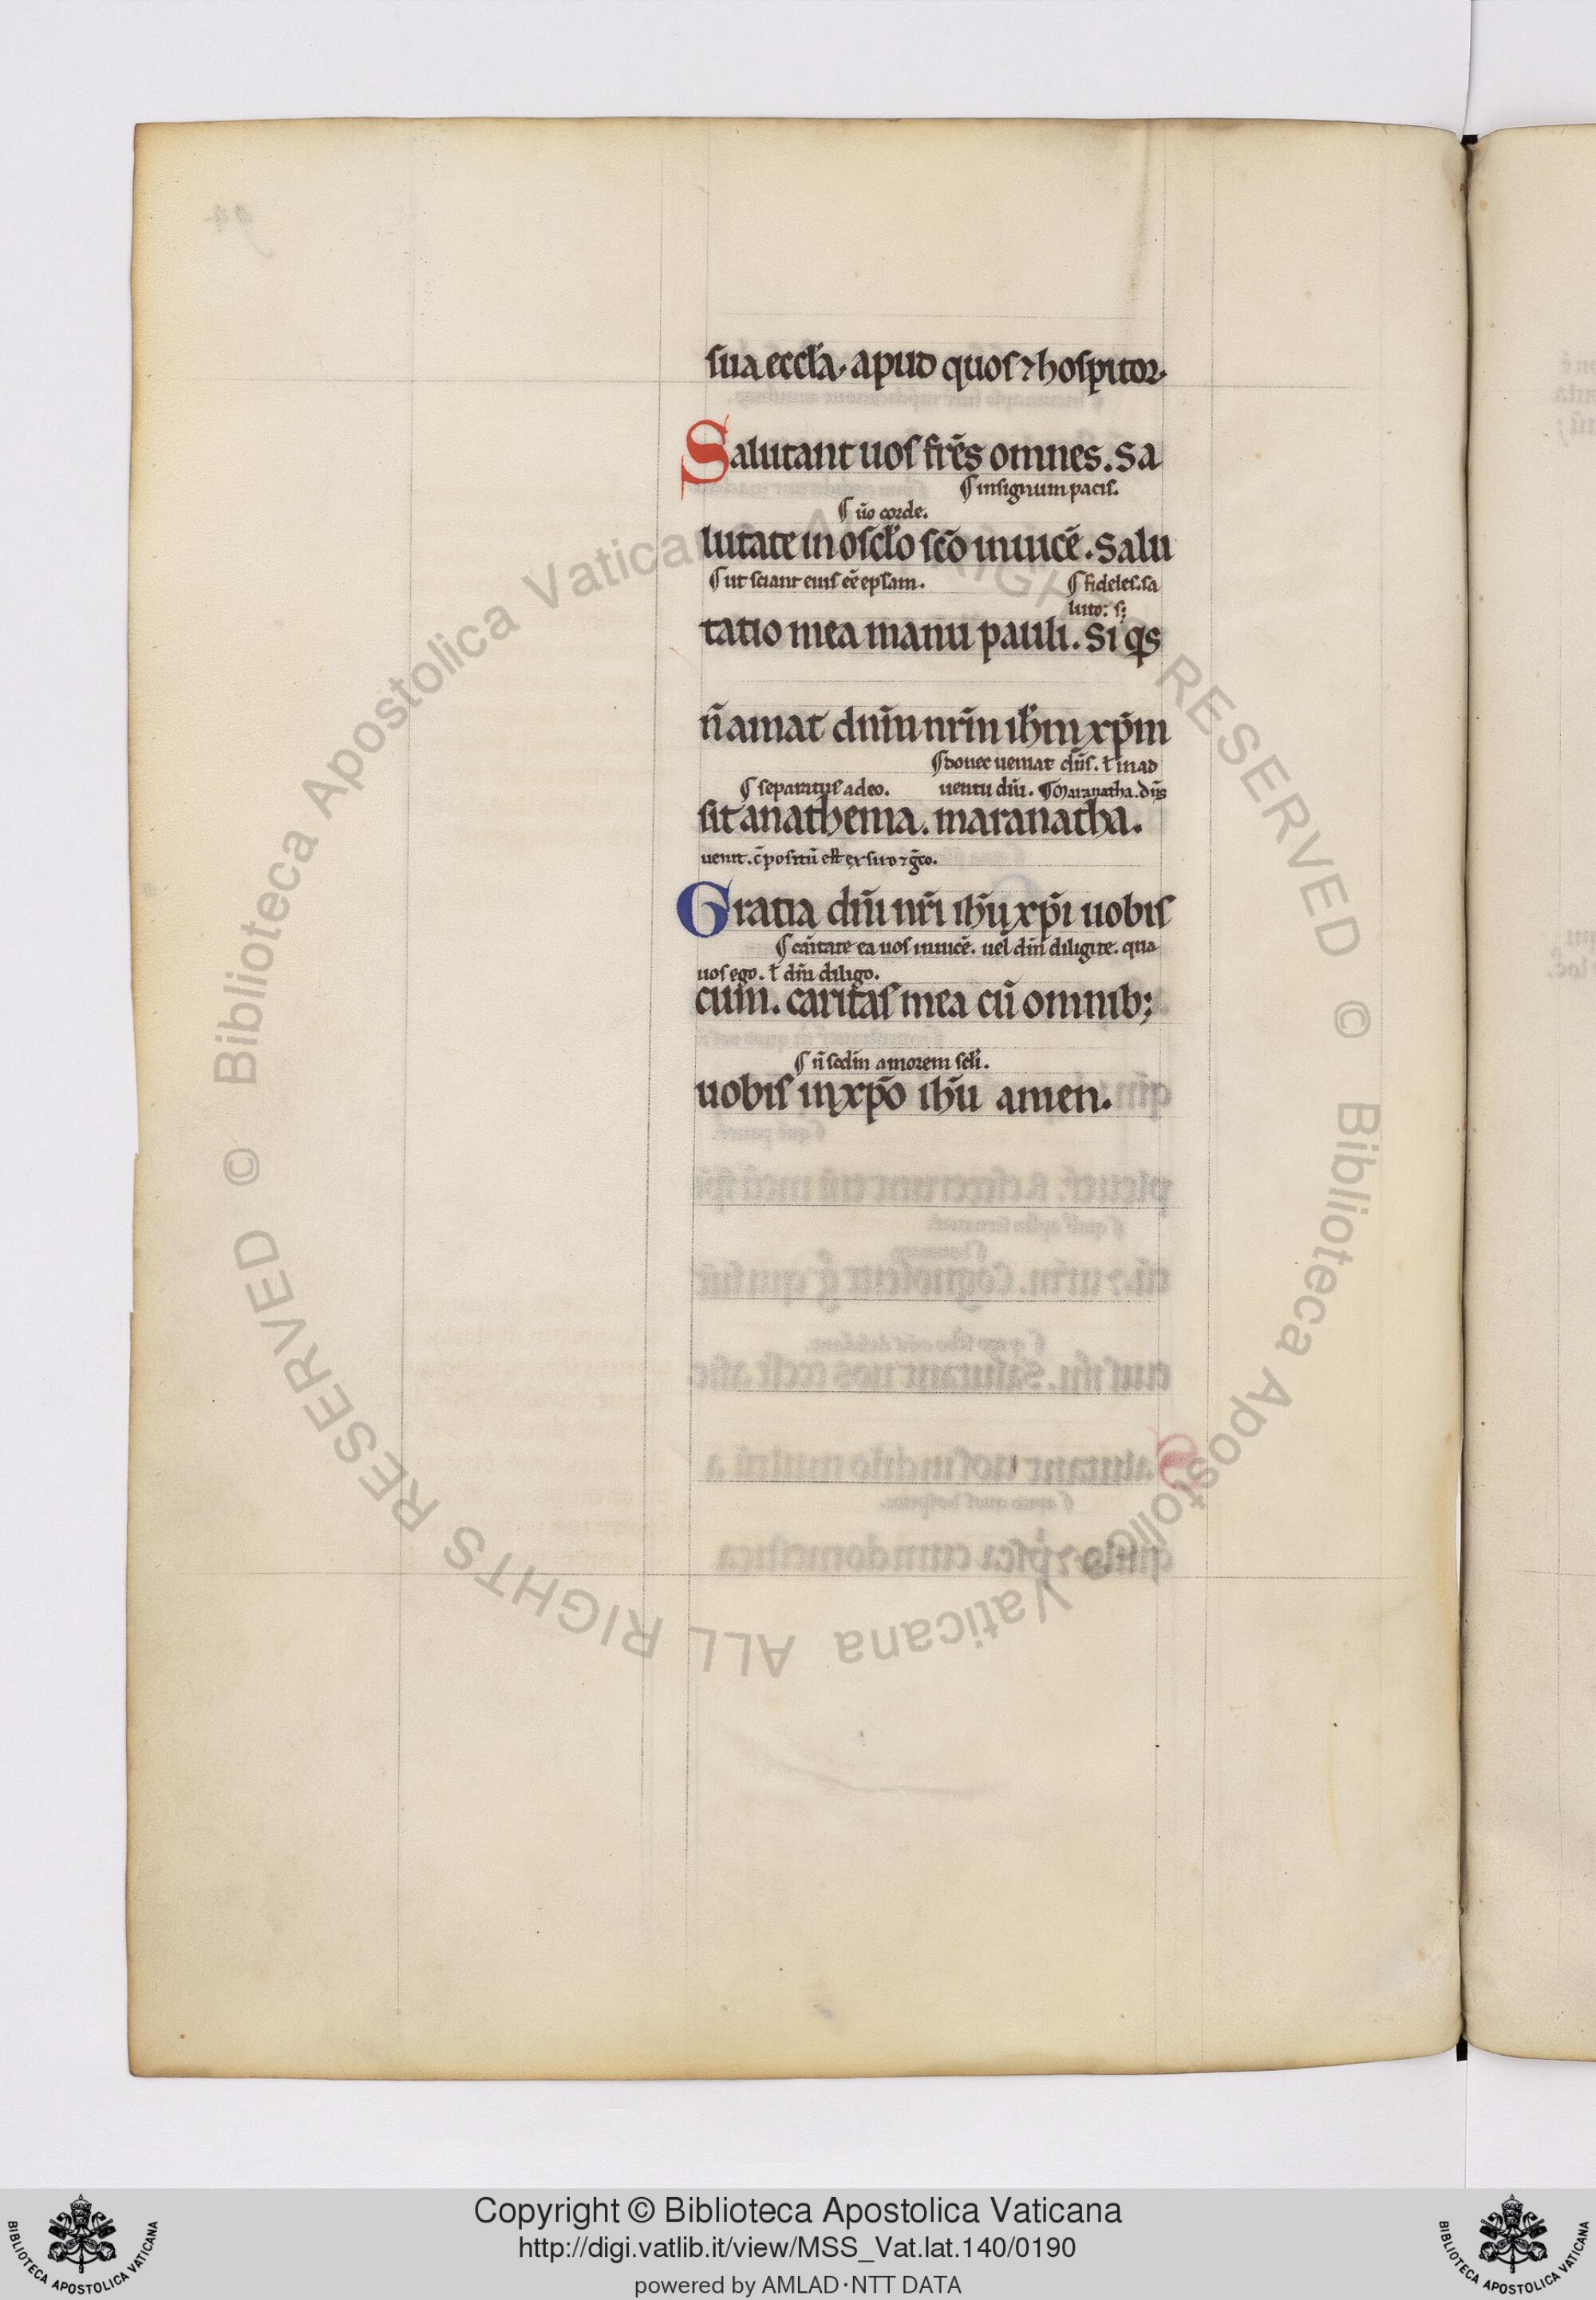 sua eccl̄a. apud quos ⁊ hospitor.
Salutant uos fr̄es omnes. Sa
¶ in signum pacis.
¶ ūo corde.
lutate in oscl̄o sc̄o inuicē. Salu
¶ ut sciant eius eē ep̄sam. ¶ fideles. sa
luto: s;
tatio mea manu pauli. Si q̄s
n̄ amat dn̄m nr̄m ih̄m xp̄m
¶ donec ueniat dn̄s. ł in ad
¶ separatus a deo. uentu dn̄i. ¶ Maranatha. dn̄s
sit anathema. maranatha.
uenit. c̄positū est ex siro ⁊ gͤco.
Gratia dn̄i nr̄i ih̄u xp̄i uobis
¶ caritate ea uos inuicē. uel dn̄m diligite. qua
uos ego. ł dn̄m diligo.
cum. caritas mea cū omnib;
¶ n̄ sc̄dm amorem sc̄li.
uobis in xp̄o ih̄u amen.
Copyright © Biblioteca Apostolica Vaticana
http://digi.vatlib.it/view/MSS_Vat.lat.140/0190
powered by AMLAD·NTT DATA
BIBLIOTECA APOSTOLICA VATICANA
BIBLIOTECA APOSTOLICA VATICANA
© Biblioteca Apostolica Vaticana ALL RIGHTS RESERVED © Biblioteca Apostolica Vaticana ALL RIGHTS RESERVED